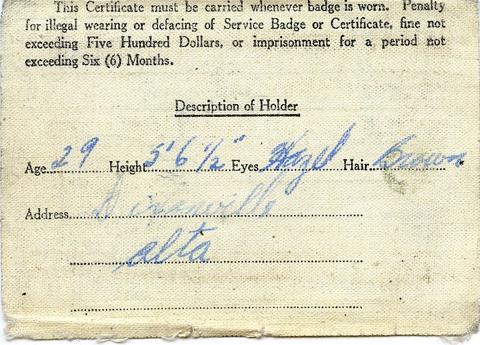 This Certificate must be carried whenever badge is worn. Penalty
for illegal wearing or defacing of Service Badge or Certificate, fine not
exceeding Five Hundred Dollars, or imprisonment for a period not
exceeding Six (6) Months.
Description of Holder
Age 29 Height 5'6½" Eyes Hazel Hair Brown
Address Dixonville
alta